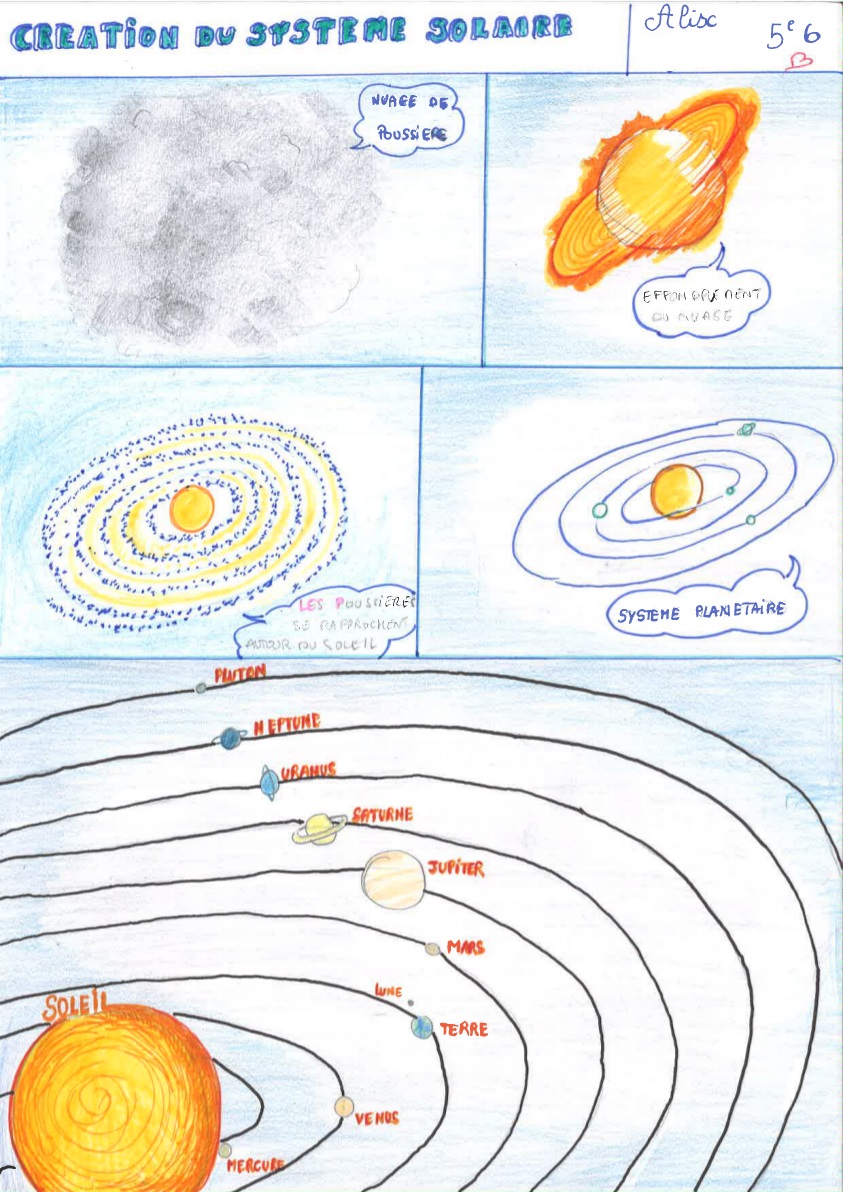 CREATION DU SYSTEME SOLAIRE
Alise
5e 6
NUAGE DE
POUSSIERE
EFFONDREMENT
DU NUAGE
LES POUSSIERES
SE RAPPROCHENT
AUTOUR DU SOLEIL
SYSTEME PLANETAIRE
PLUTON
NEPTUNE
URANUS
SATURNE
JUPITER
MARS
LUNE
TERRE
SOLEIL
VENUS
MERCURE